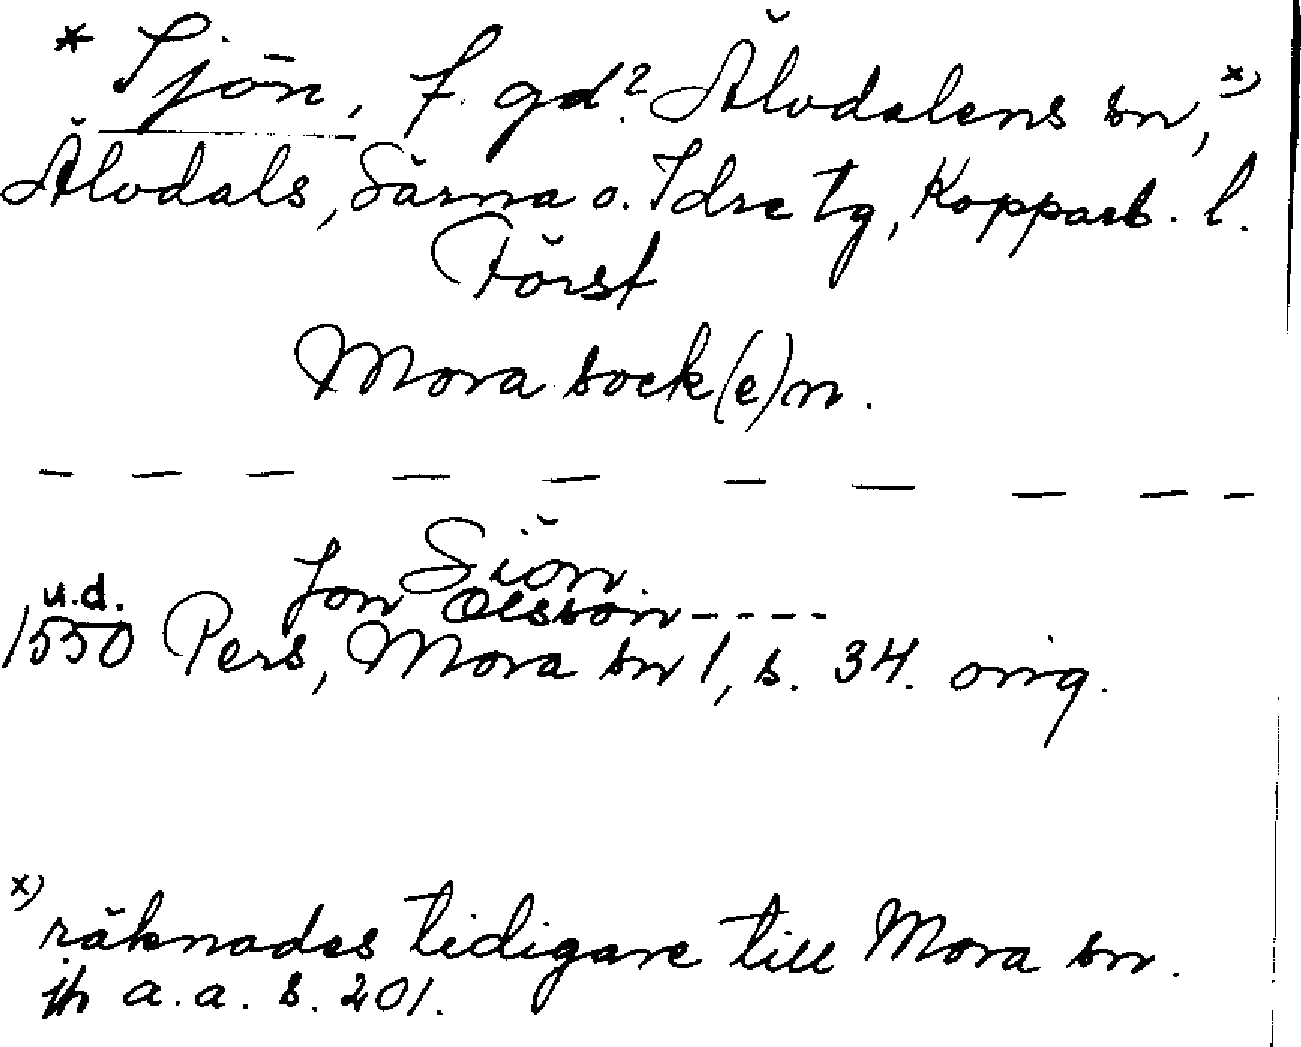 * Sjön, f. gd? Älvdalens sn, x)
Älvdals, Särna o. Idre tg, Kopparb. l.
Först
Mora sock(e)n.
Siön
Jon Olsson ----
u.d.
1550 Pers, Mora sn 1, s. 34. orig.
x) räknades tidigare till Mora sn.
jfr a.a. s. 201.